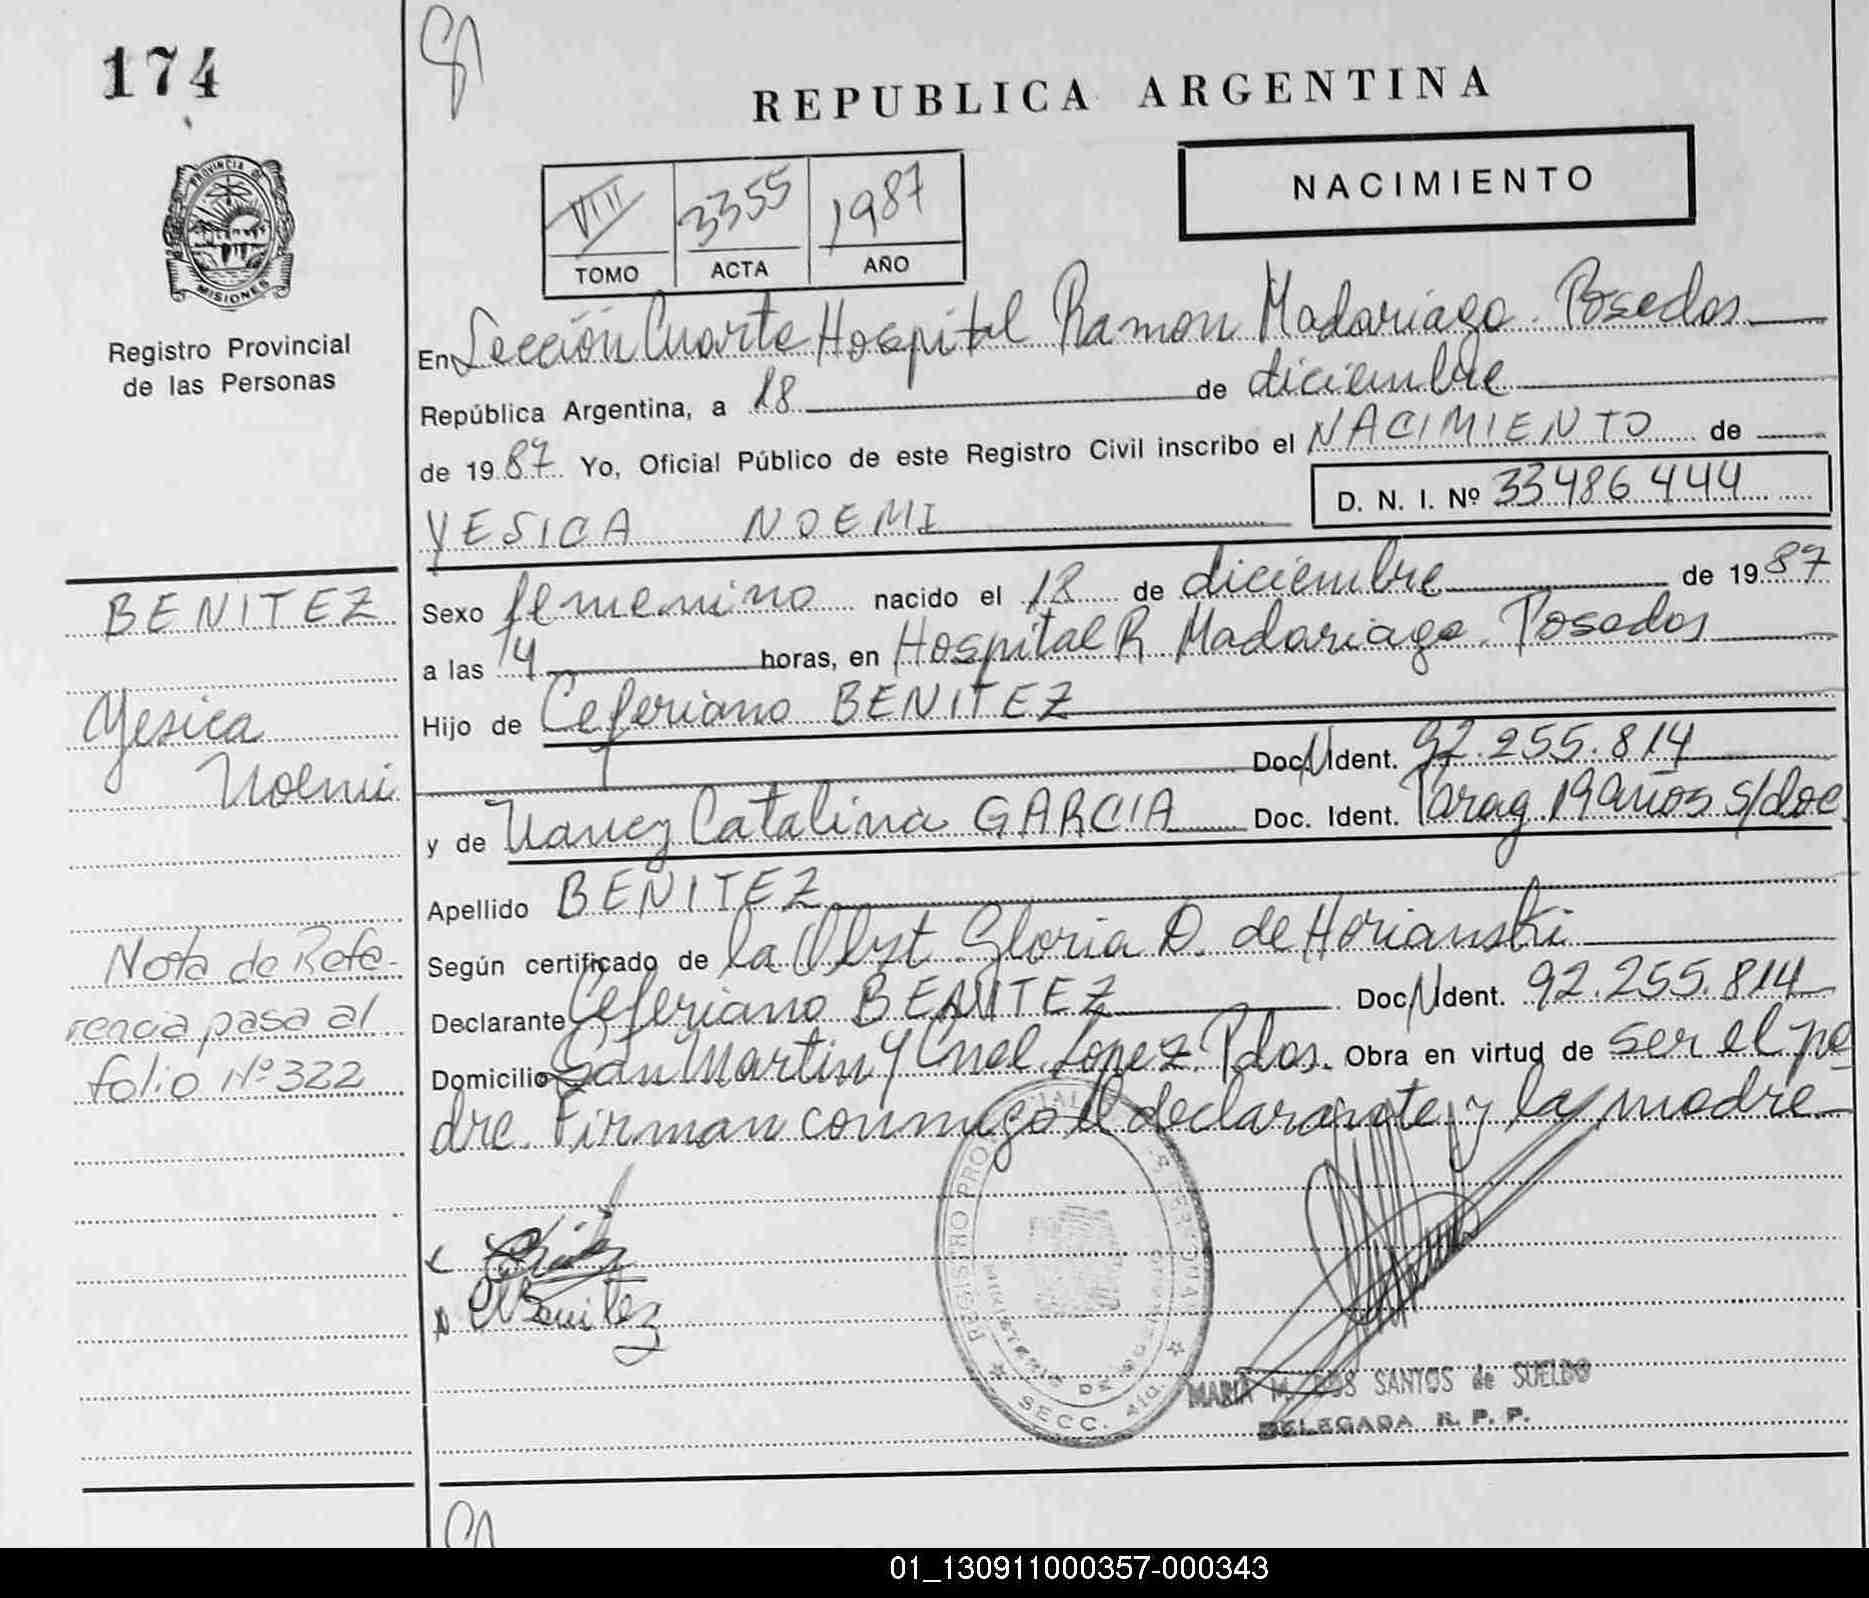 174
REPUBLICA ARGENTINA
NACIMIENTO
VIII 3355 1987
TOMO ACTA AÑO
PROVINCIA DE MISIONES
Registro Provincial
de las Personas
En Sección Cuarta Hospital Ramon Madariaga. Posadas
República Argentina, a 18 de diciembre
de 1987 Yo, Oficial Público de este Registro Civil inscribo el NACIMIENTO de
D. N. I. Nº 33486444
YESICA NOEMI
BENITEZ
Yesica
Noemi
Sexo femenino nacido el 18 de diciembre de 1987
a las 14 horas, en Hospital R Madariaga. Posadas
Hijo de Ceferiano BENITEZ
Doc. N Ident. 92.255.814
y de Nancy Catalina GARCIA Doc. Ident. Parag. 19 años s/doc
Apellido BENITEZ
Según certificado de la Obst. Gloria D. de Horianski
Declarante Ceferiano BENITEZ Doc. N Ident. 92.255.814
Domicilio San Martin y Cnel Lopez. Pdas. Obra en virtud de ser el pa
dre. Firman conmigo el declarante y la madre
Nota de Refe-
rencia pasa al
folio Nº 322
Benitez
REGISTRO
MINISTERIO DE
SECC. 4ta
MARIA M. DOS SANTOS de SUELDO
DELEGADA R. P. P.
01_130911000357-000343